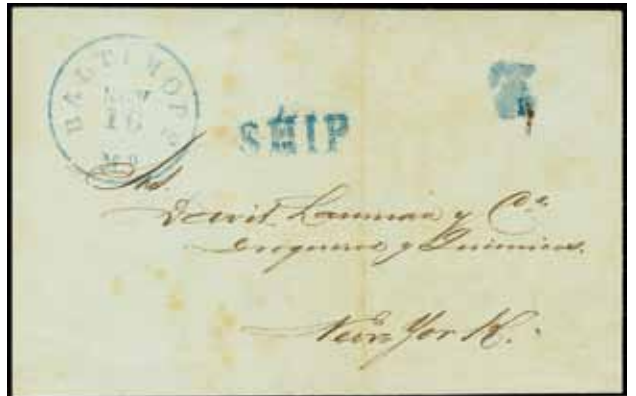 BALTIMORE
16
Md.
SHIP
Srs.
David Lanman y Ca.
Drogueros y Quimicos.
New York.